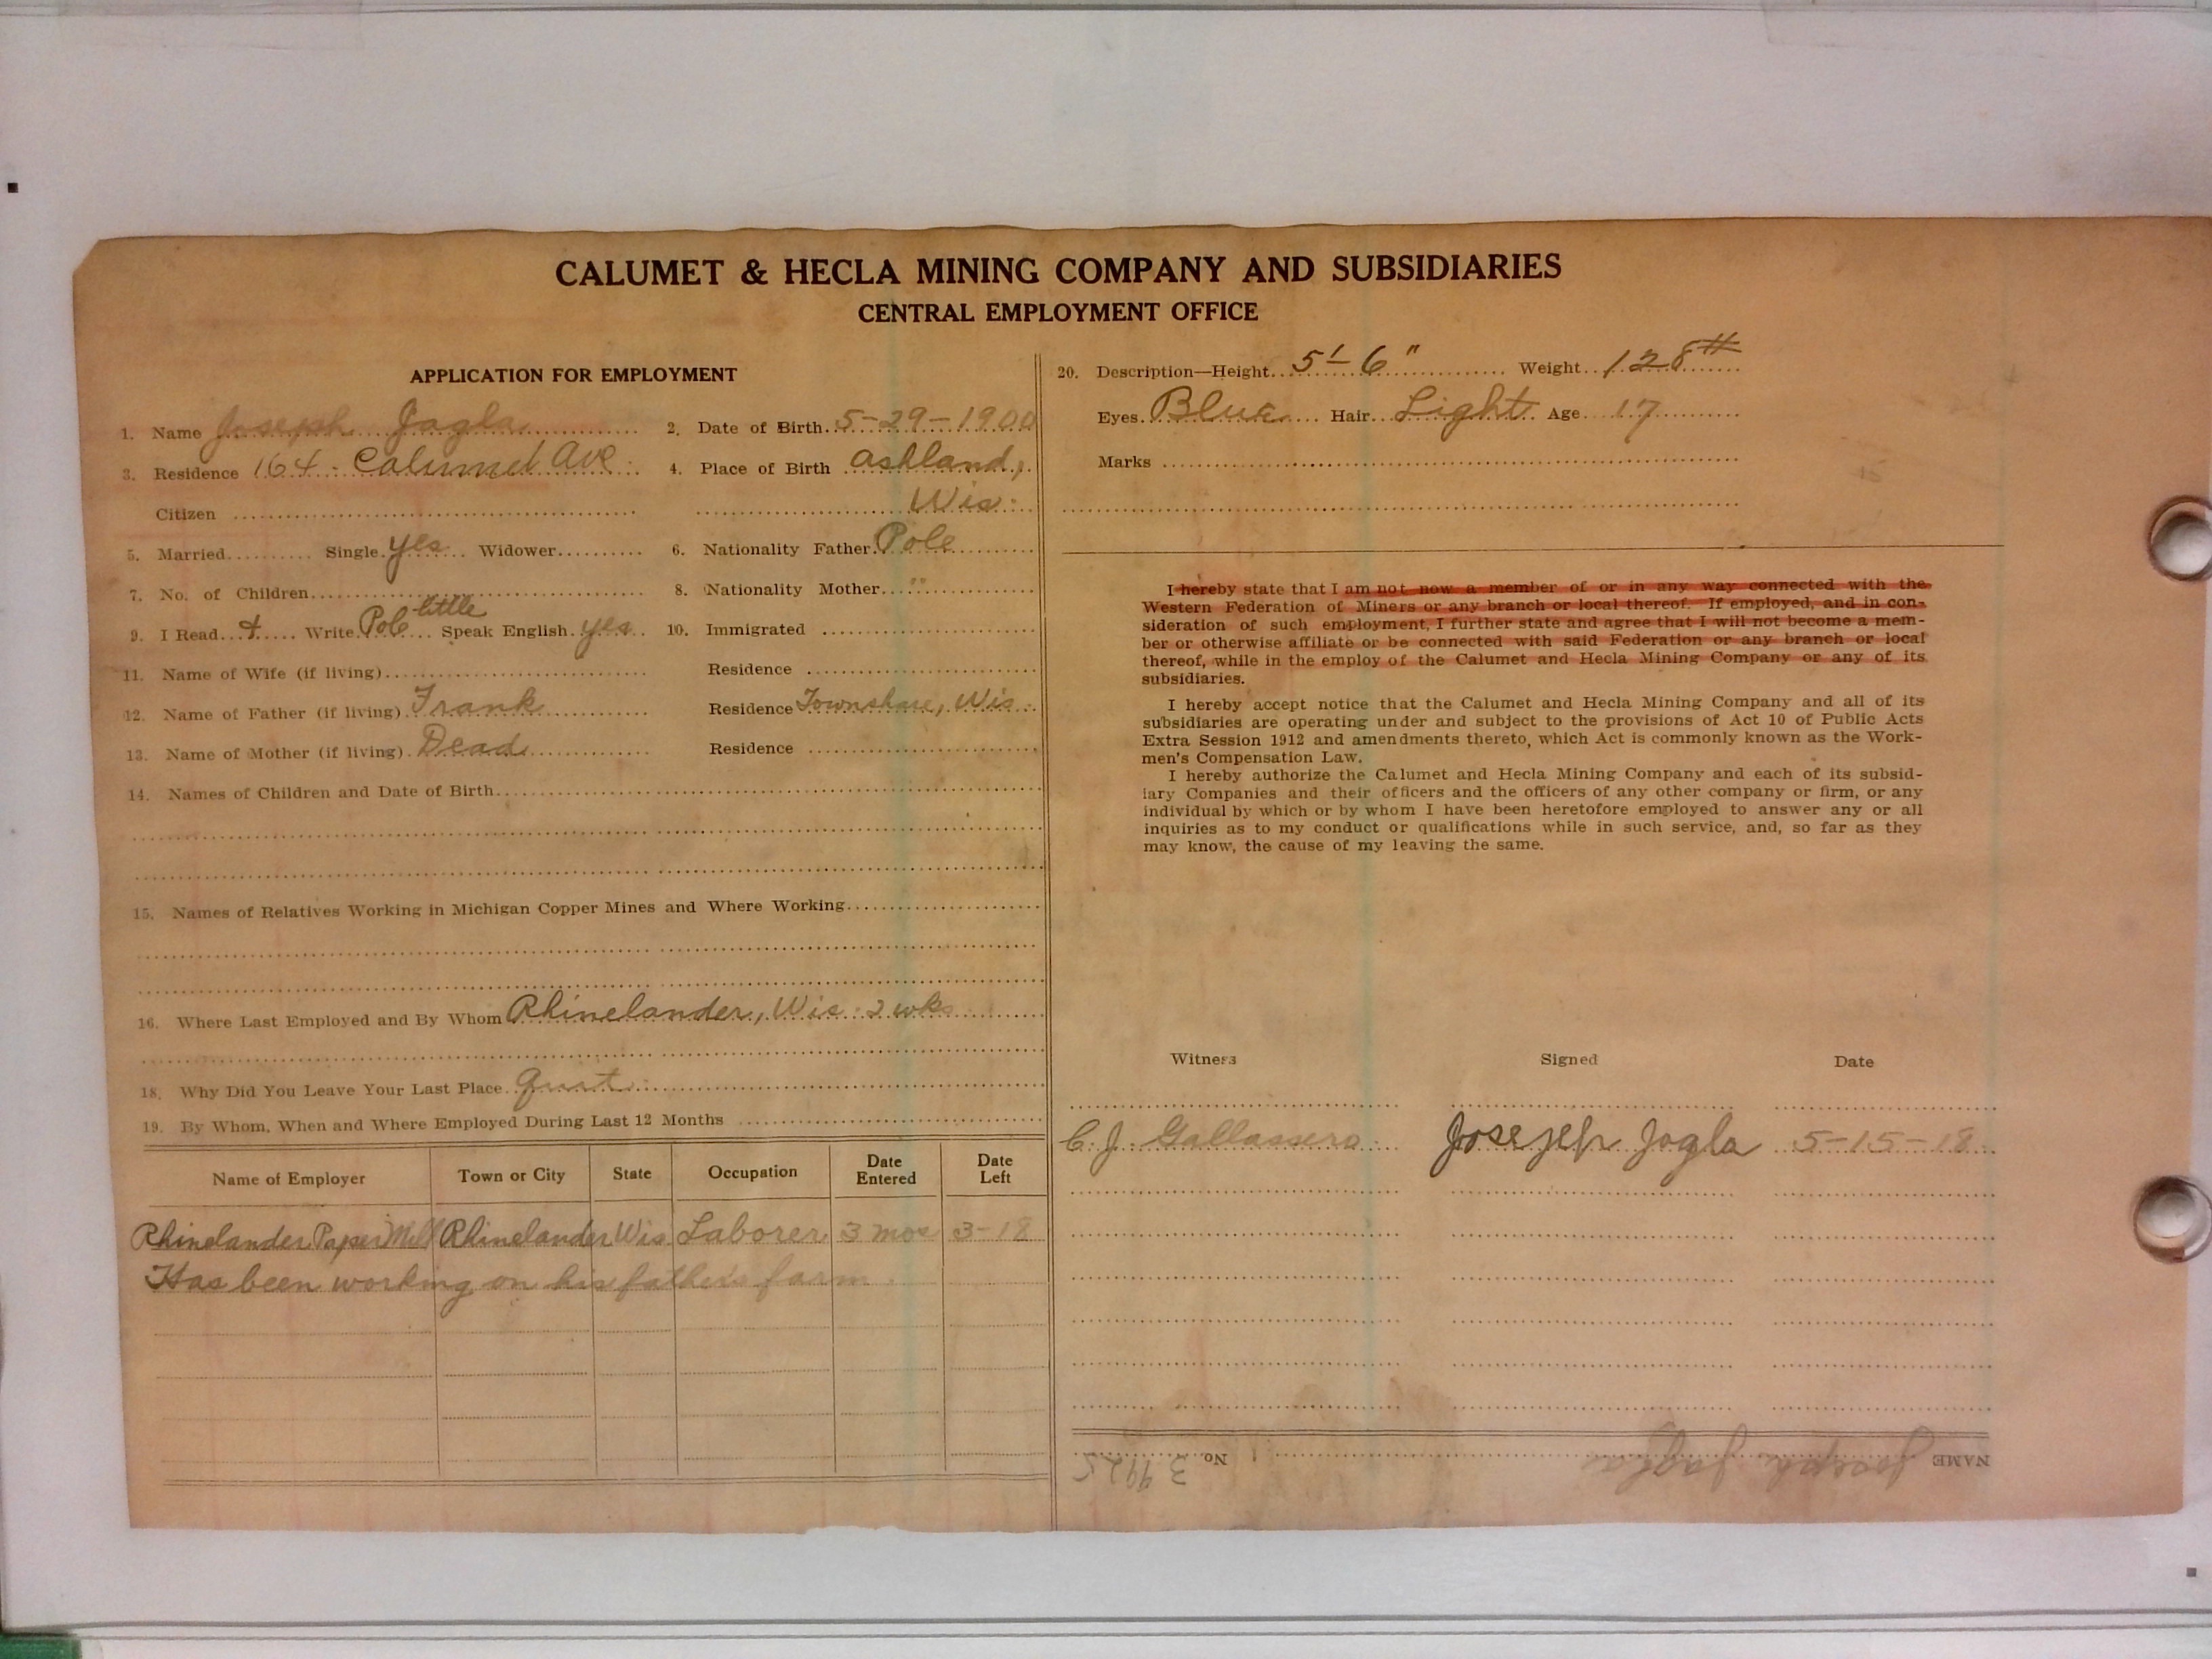 CALUMET & HECLA MINING COMPANY AND SUBSIDIARIES
CENTRAL EMPLOYMENT OFFICE
APPLICATION FOR EMPLOYMENT
1. Name Joseph Jagla 2. Date of Birth 5-29-1900
3. Residence 164 - Calumet Ave. 4. Place of Birth Ashland,
Citizen Wis.
5. Married Single yes Widower 6. Nationality Father Pole
7. No. of Children 8. Nationality Mother "
little
9. I Read Write Pol Speak English yes 10. Immigrated
11. Name of Wife (if living) Residence
12. Name of Father (if living) Frank Residence Wis.
13. Name of Mother (if living) Dead Residence
14. Names of Children and Date of Birth
15. Names of Relatives Working in Michigan Copper Mines and Where Working
16. Where Last Employed and By Whom Rhinelander, Wis. 2 wks
18. Why Did You Leave Your Last Place quit
19. By Whom, When and Where Employed During Last 12 Months
Name of Employer Town or City State Occupation Date Entered Date Left
Rhinelander Paper Mill Rhinelander Wis Laborer 3 mos 3-18
Has been working on his father's farm.
20. Description—Height 5'-6" Weight 128#
Eyes Blue Hair Light Age 17
Marks
I hereby state that I am not now a member of or in any way connected with the
Western Federation of Miners or any branch or local thereof. If employed, and in con-
sideration of such employment, I further state and agree that I will not become a mem-
ber or otherwise affiliate or be connected with said Federation or any branch or local
thereof, while in the employ of the Calumet and Hecla Mining Company or any of its
subsidiaries.
I hereby accept notice that the Calumet and Hecla Mining Company and all of its
subsidiaries are operating under and subject to the provisions of Act 10 of Public Acts
Extra Session 1912 and amendments thereto, which Act is commonly known as the Work-
men's Compensation Law.
I hereby authorize the Calumet and Hecla Mining Company and each of its subsid-
iary Companies and their officers and the officers of any other company or firm, or any
individual by which or by whom I have been heretofore employed to answer any or all
inquiries as to my conduct or qualifications while in such service, and, so far as they
may know, the cause of my leaving the same.
Witness Signed Date
C. J. Gallassero Josejeph Jogla 5-15-18
NAME Joseph Jagla No.